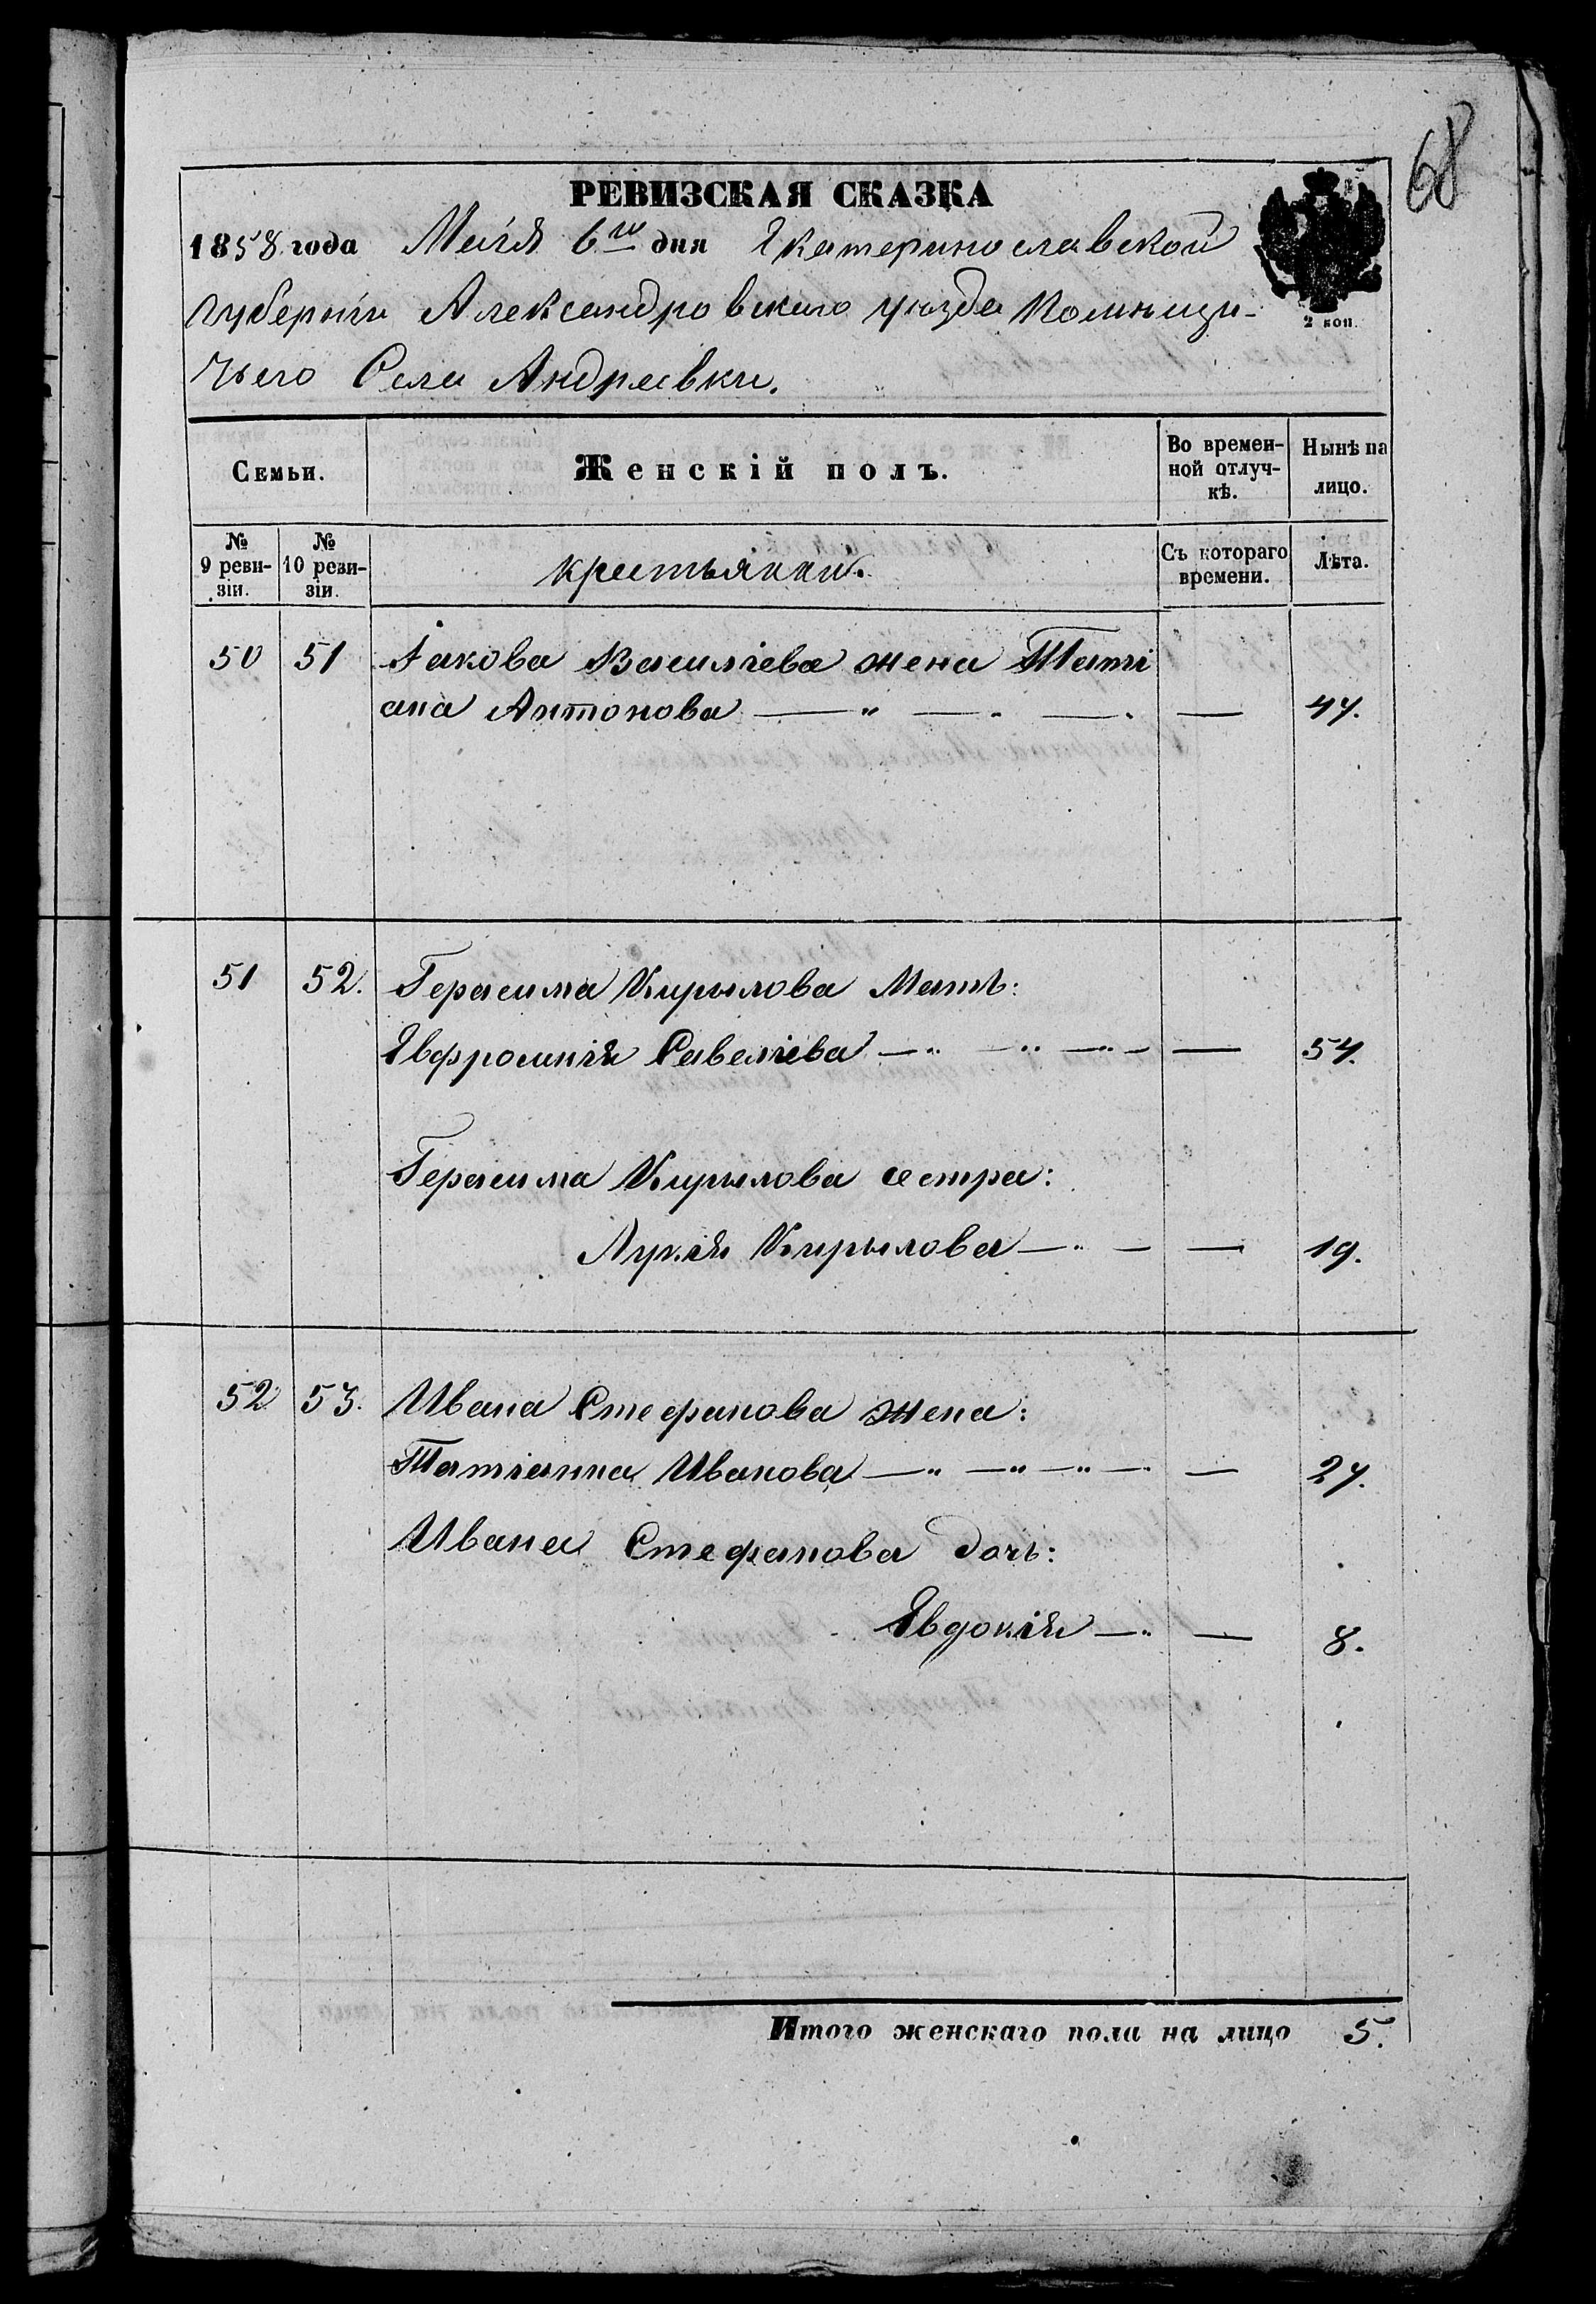 68
РЕВИЗСКАЯ СКАЗКА
1858 года Маія 6го дня Екатеринославской
2 коп.
губерніи Александровскаго уѣзда Помѣщи-
чьего Села Андреевки.
Семьи. Женскій полъ. Во времен-ной отлуч-кѣ. Нынѣ на лицо.
№ 9 реви-зіи. № 10 реви-зіи. крестьянки. Съ котораго времени. Лѣта.
50 51 Іакова Василіева жена Таті
ана Антонова — " — " — " — 47.
51 52. Герасима Кирылова Мать:
Евфросинія Савеліева — " — " — " — — 54.
Герасима Кирылова сестра:
Лукія Кирылова — " — — 19.
52 53. Ивана Стефанова жена:
Татіанна Иванова — " — " — " — " — 27.
Ивана Стефанова дочь:
Евдокія — " — 8.
Итого женскаго пола на лицо 5.